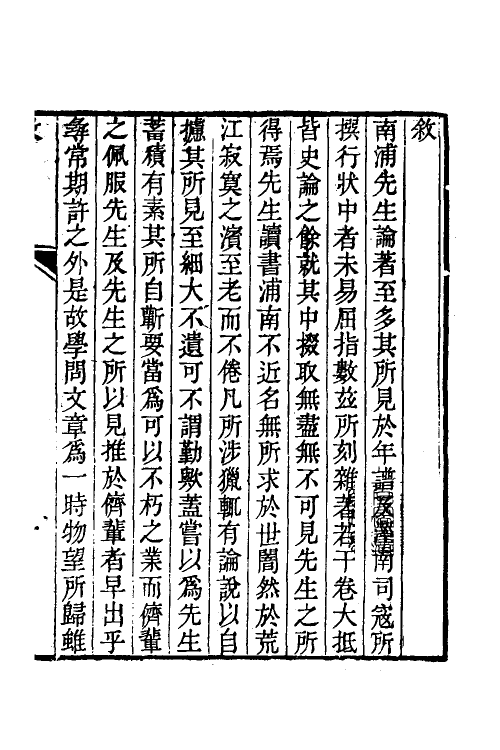 敘
南浦先生論著至多其所見於年譜及溪南司寇所
撰行狀中者未易屈指數玆所刻雜著若干卷大抵
皆史論之餘就其中掇取無盡無不可見先生之所
得焉先生讀書浦南不近名無所求於世闇然於荒
江寂寞之濱至老而不倦凡所涉獵輒有論說以自
攄其所見至細大不遺可不謂勤歟蓋嘗以爲先生
蓄積有素其所自蘄要當爲可以不朽之業而儕輩
之佩服先生及先生之所以見推於儕輩者早出乎
尋常期許之外是故學問文章爲一時物望所歸雖